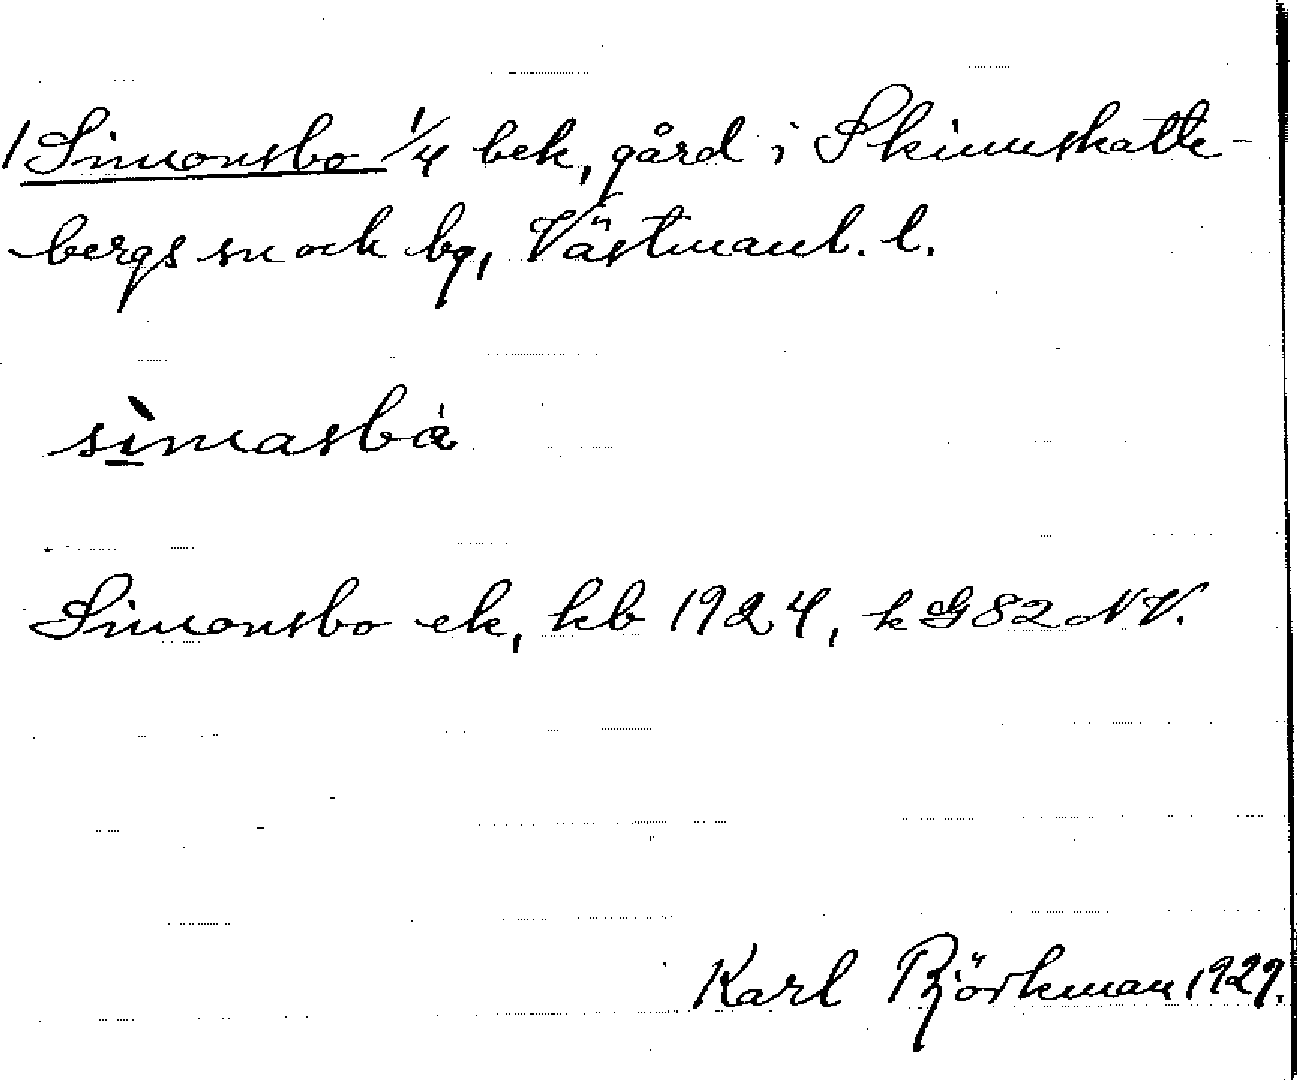 1 Simonsbo 1/4 bek, gård i Skinnskatte-
bergs sn och bg, Västmanl. l.
sìmasbà
Simonsbo ek, hb 1924, k G82 NV.
Karl Björkman 1929.